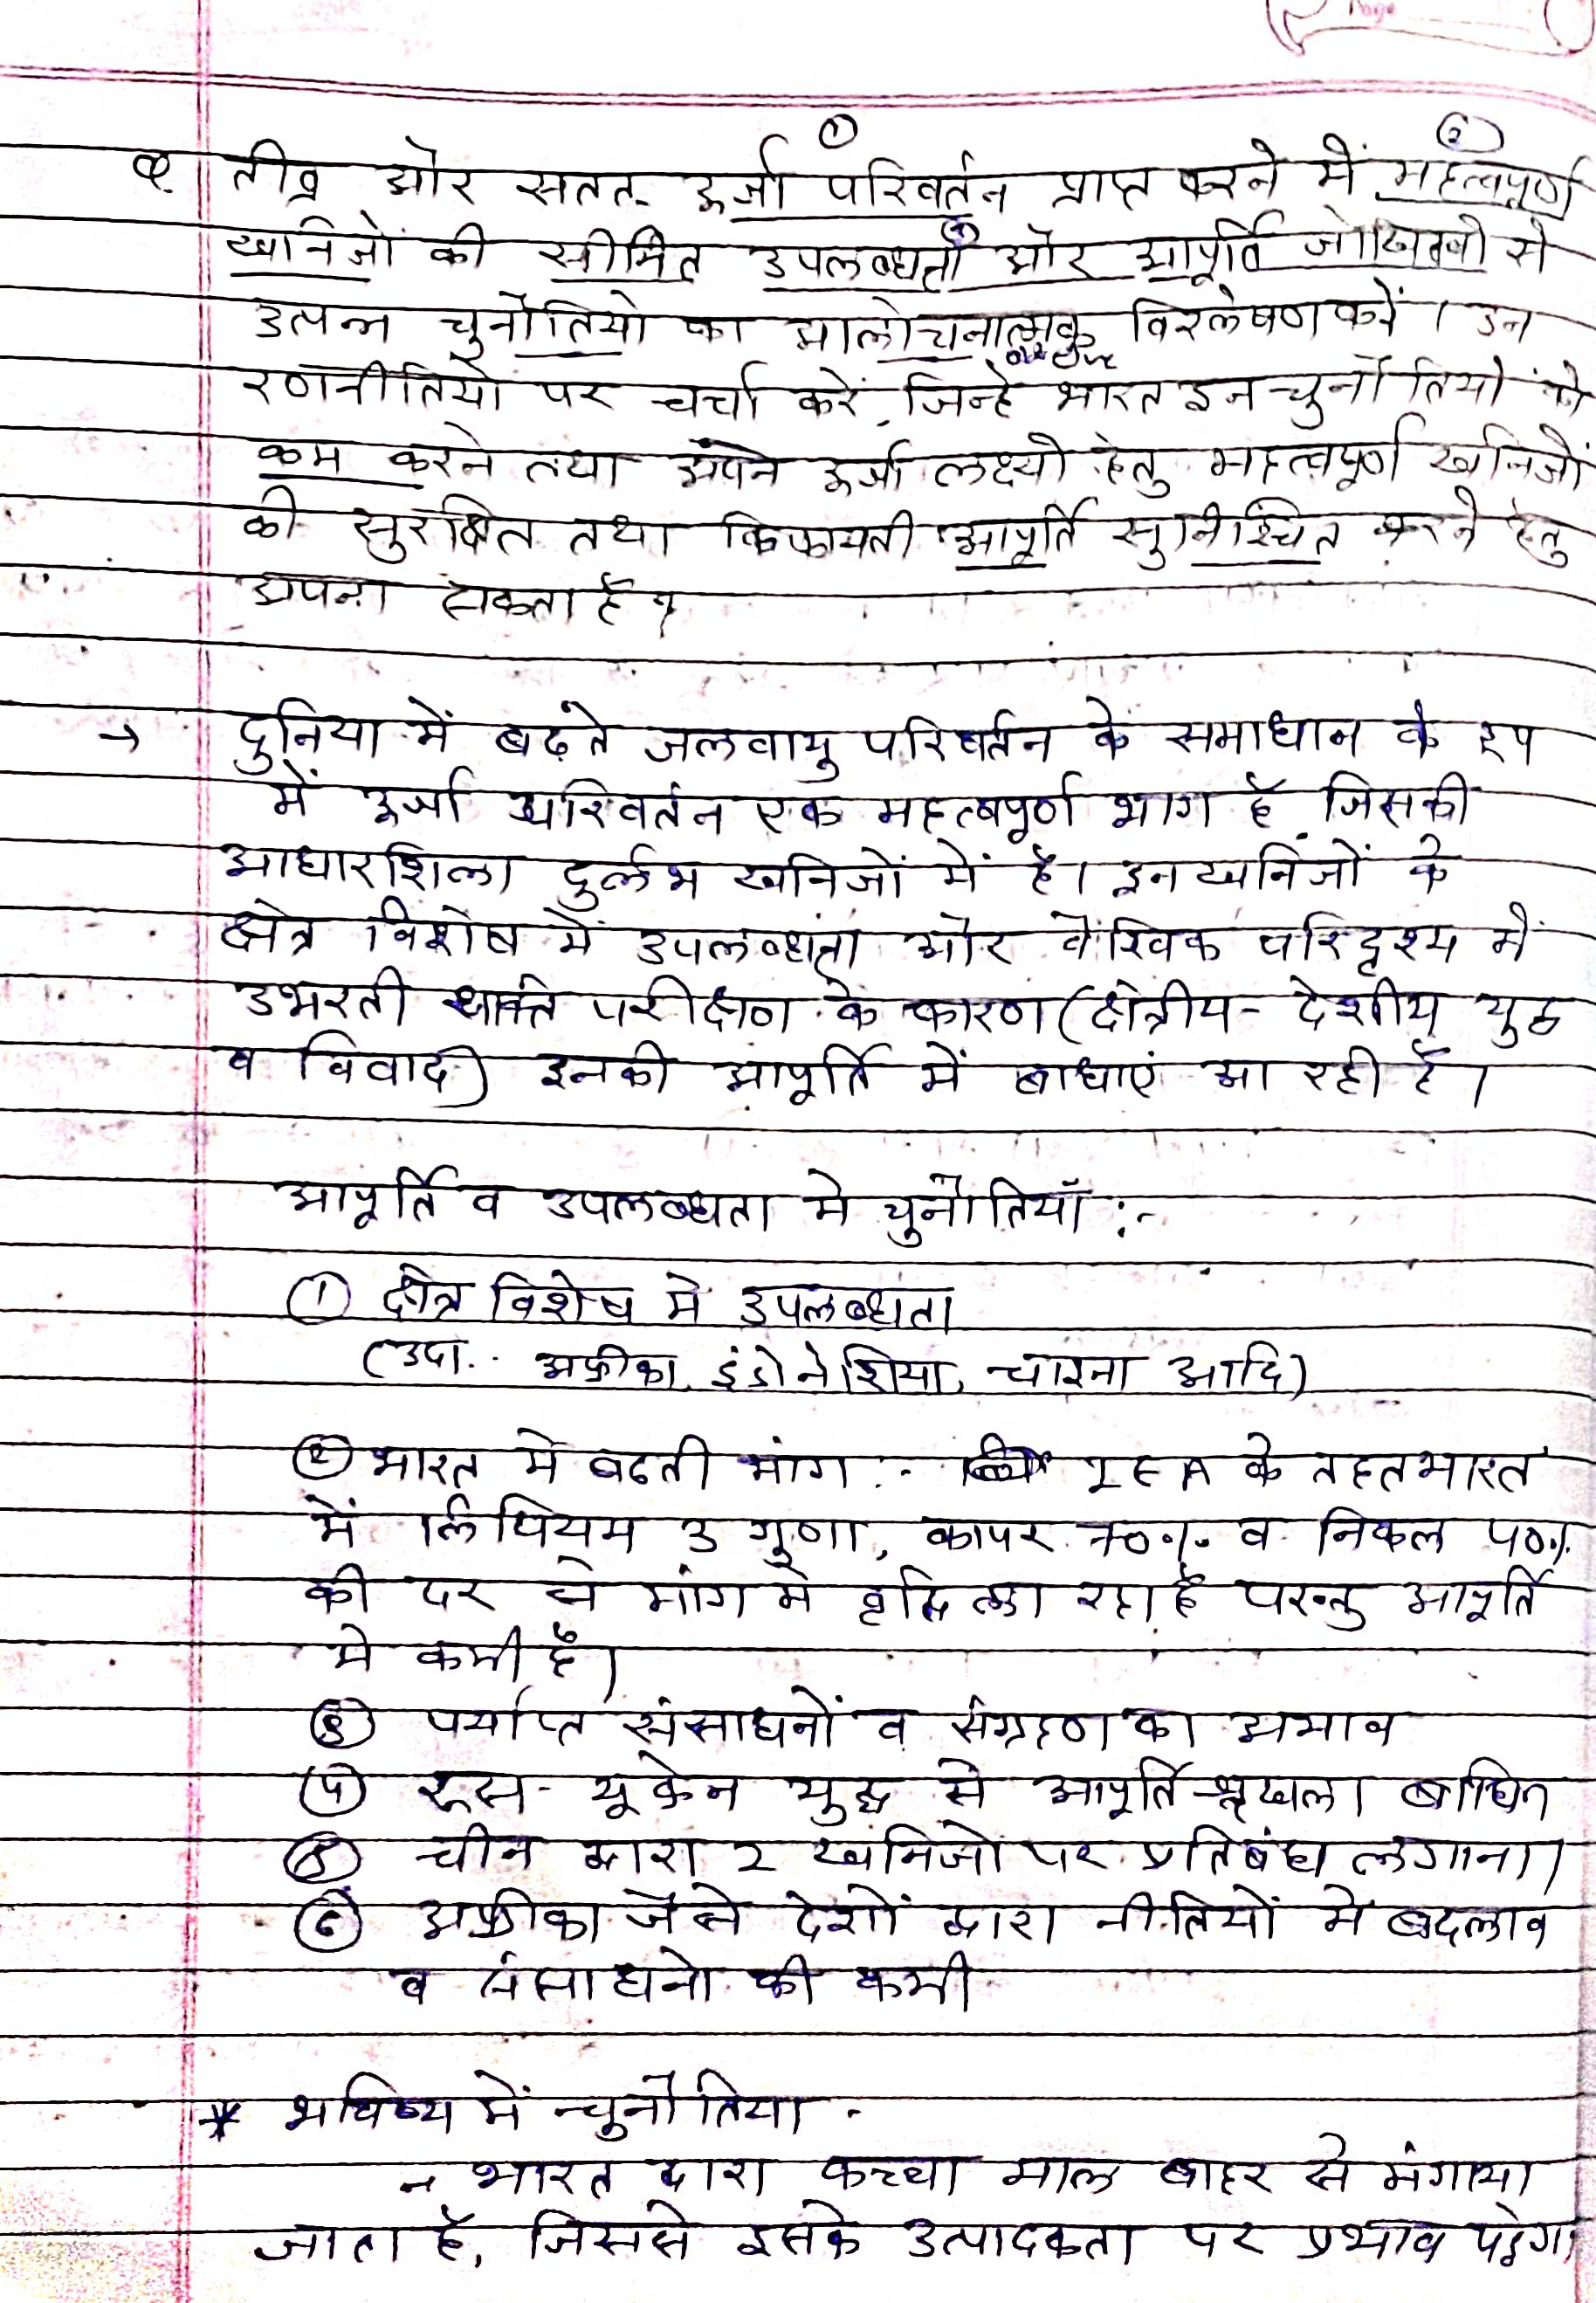 Page
①
②
Q. तीव्र और सतत ऊर्जा परिवर्तन प्राप्त करने में महत्वपूर्ण
खनिजों की सीमित उपलब्धता और आपूर्ति जोखिमों से
उत्पन्न चुनौतियो का आलोचनात्मक विश्लेषण करें। उन
रणनीतियों पर चर्चा करें, जिन्हे भारत इन चुनौतियों को
कम करने तथा अपने ऊर्जा लक्ष्यो हेतु महत्वपूर्ण खनिजों
की सुरक्षित तथा किफायती आपूर्ति सुनिश्चित करने हेतु
अपना सकता है?
→ दुनिया में बढ़ते जलवायु परिवर्तन के समाधान के रूप
में ऊर्जा परिवर्तन एक महत्वपूर्ण भाग है जिसकी
आधारशिला दुर्लभ खनिजों में है। इन खनिजों के
क्षेत्र विशेष में उपलब्धता और वैश्विक परिदृश्य में
उभरती शक्ति परीक्षण के कारण (क्षेत्रीय - देशीय युद्ध
व विवाद) इनकी आपूर्ति में बाधाएं आ रही है।
आपूर्ति व उपलब्धता मे चुनौतियाँ :-
① क्षेत्र विशेष मे उपलब्धता
(उदा.. अफ्रीका, इंडोनेशिया, चाइना आदि)
② भारत मे बढती मांग :- IEA के तहत भारत
में लिथियम 3 गुणा, कापर 70% व निकल 40%
की दर से मांग मे वृद्धि ला रहा है परन्तु आपूर्ति
मे कमी है।
③ पर्याप्त संसाधनों व संग्रहण का अभाव
④ रूस - यूक्रेन युद्ध से आपूर्ति श्रृंखला बाधित
⑤ चीन द्वारा 2 खनिजो पर प्रतिबंध लगाना।
⑥ अफ्रीका जैसे देशों द्वारा नीतियों मे बदलाव
व संसाधनो की कमी
* भविष्य में चुनौतिया -
→ भारत द्वारा कच्चा माल बाहर से मंगाया
जाता है, जिससे इसके उत्पादकता पर प्रभाव पड़ेगा